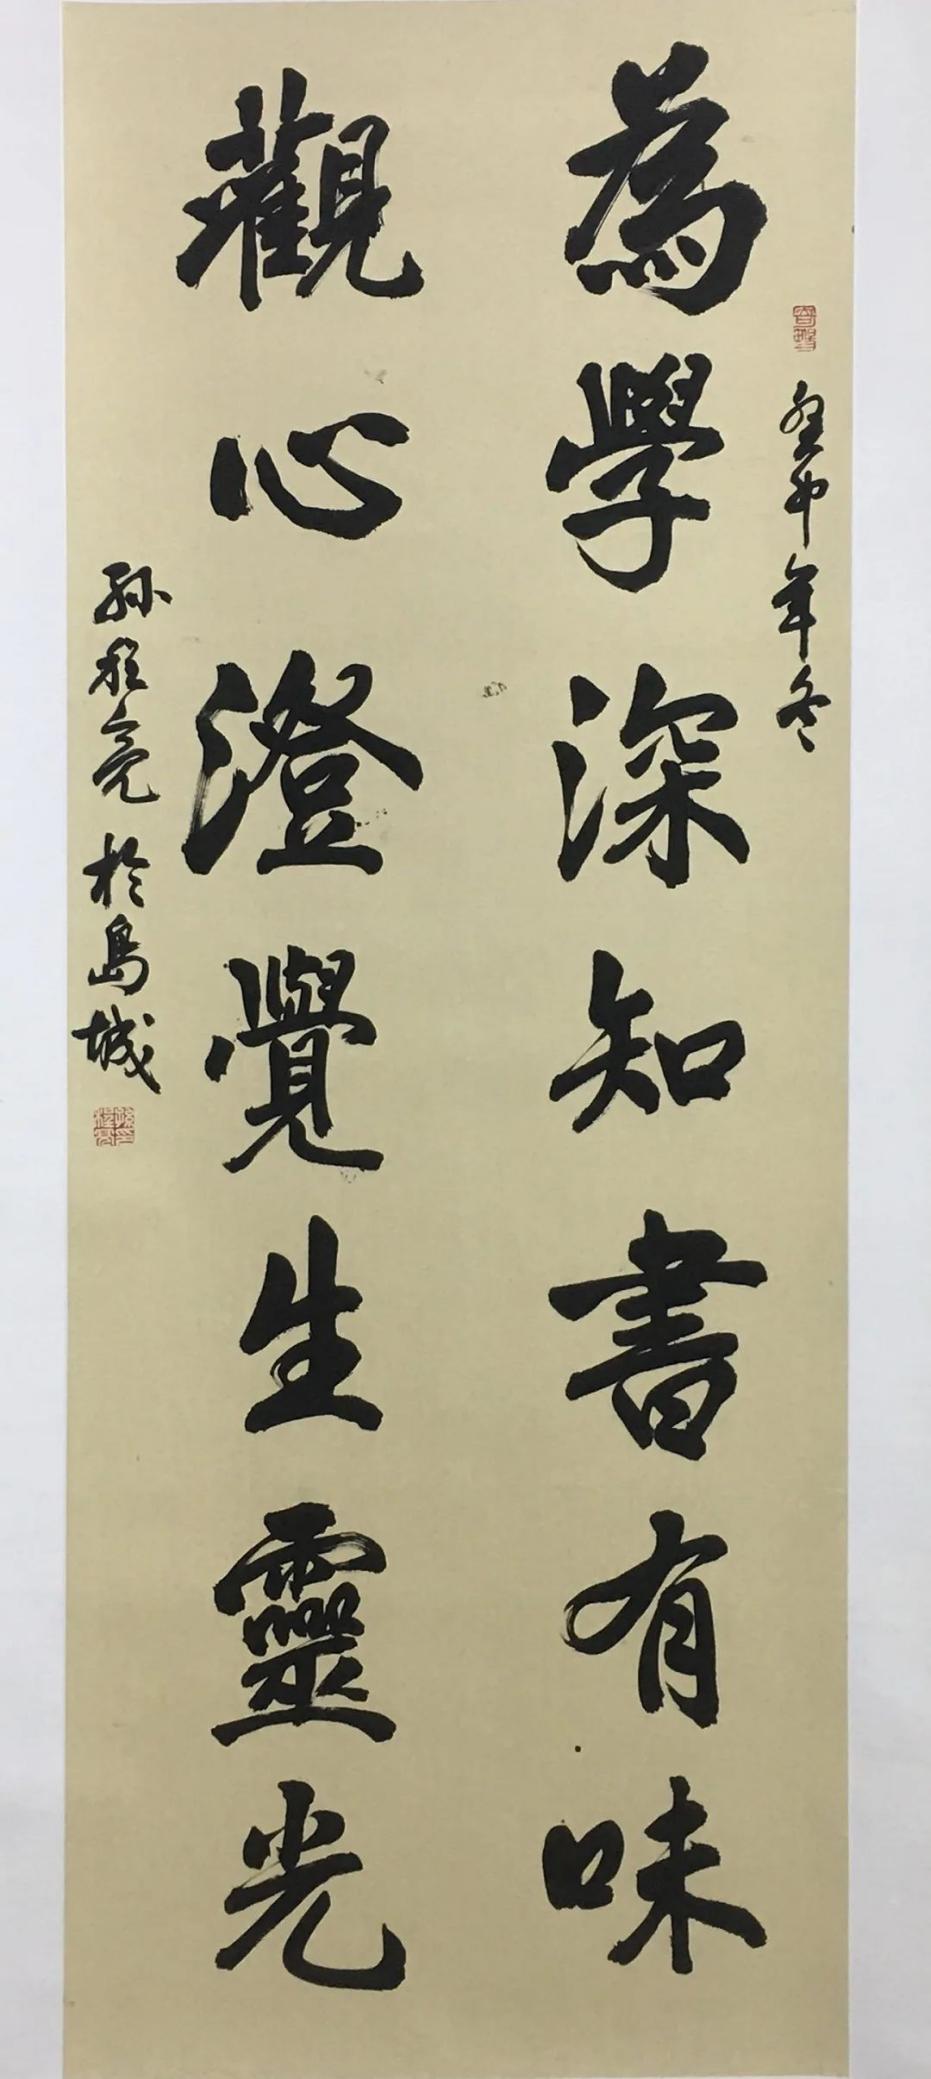 癸巳年冬
為學深知書有味
觀心澄覺生靈光
孫程亮於島城